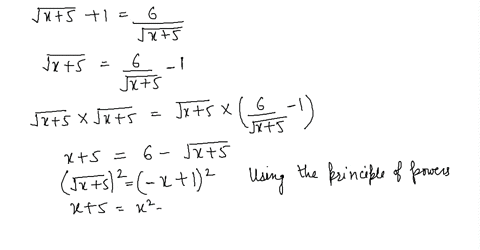 √x+5 + 1 = 6/√x+5
√x+5 = 6/√x+5 - 1
√x+5 × √x+5 = √x+5 × (6/√x+5 - 1)
x+5 = 6 - √x+5
(√x+5)² = (-x+1)² Using the principle of powers
x+5 = x² -